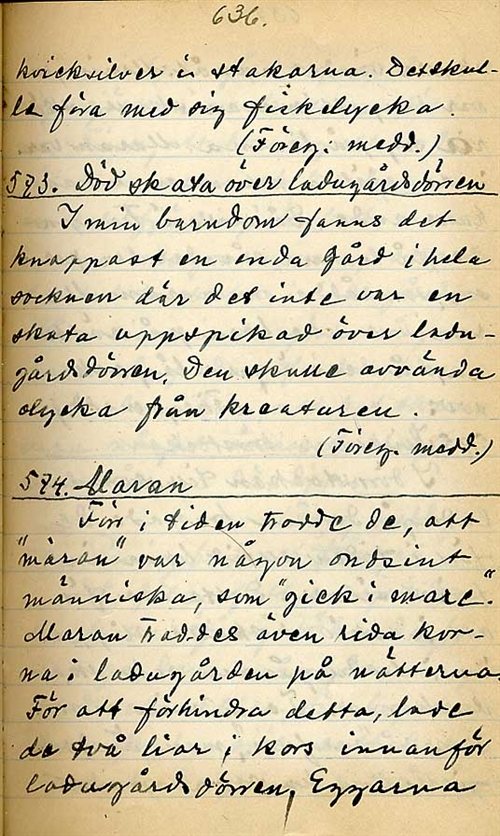 636.
kvicksilver i stakarna. Det skul-
le föra med sig fiskelycka.
(Föreg: medd.)
573. Död skata över ladugårdsdörren
I min barndom fanns det
knappast en enda gård i hela
socknen där det inte var en
skata uppspikad över ladu-
gårdsdörren. Den skulle avvända
olycka från kreaturen.
(Föreg. medd.)
574. Maran
Förr i tiden trodde de, att
"maran" var någon ondsint
människa, som "gick i mare".
Maran troddes även rida kor-
na i ladugården på nätterna.
För att förhindra detta, lade
de två liar i kors innanför
ladugårdsdörren, Eggarna